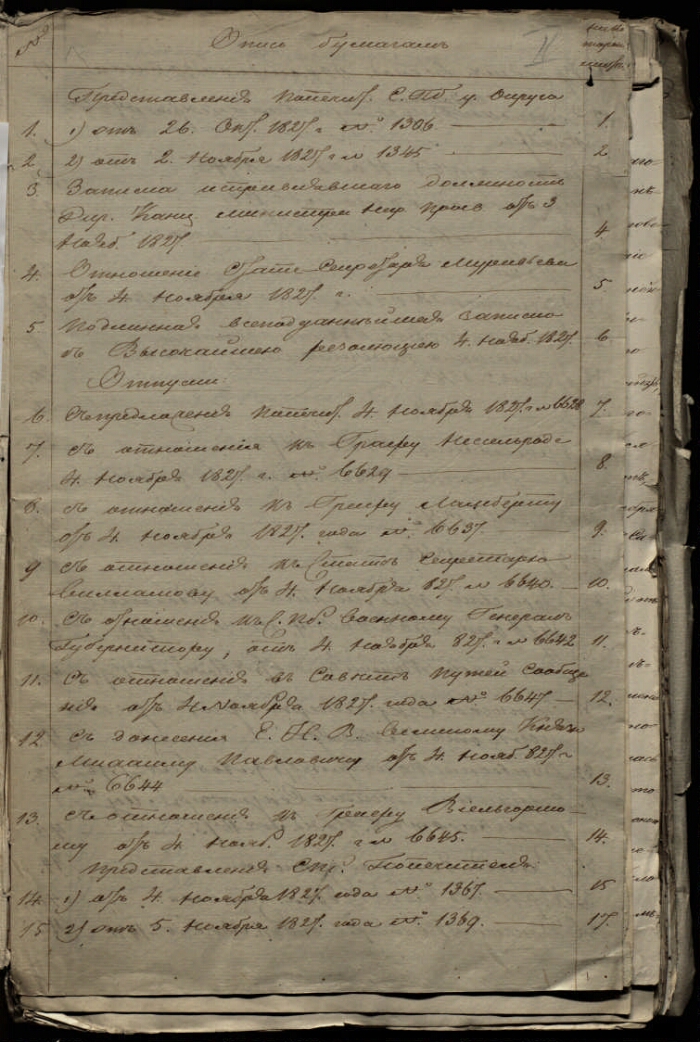 № Опись бумагамъ II
Представленія попечит. С.Пб. у. Округа
1. 1) отъ 26. Окт. 1827 г. № 1306 1.
2. 2) отъ 2. Ноября 1827 г. № 1345 2
3. Записка исправлявшаго должность
Дир. Канц. Министра Нар. Просв. отъ 3
Нояб. 1827. 4
4. Отношеніе Статс-Секретаря Муравьева
отъ 4. Ноября 1827. г. 5.
5. Подлинная всеподданнѣйшая записка
съ Высочайшею резолюціею 4. Нояб. 1827. 6
Отпуски:
6. Съ предложенія Попечит. 4 Ноября 1827. г. № 6628 7.
7. Съ отношенія къ Графу Нессельроде
4 Ноября 1827. г. № 6629 8.
8. Съ отношенія къ Графу Ламберту
отъ 4. Ноября 1827. года № 6637. 9.
9 Съ отношенія къ Статсъ Секретарю
Вилламову отъ 4. Ноября 827. № 6640. 10.
10. Съ отношенія къ С. Пб. Военному Генералъ
Губернатору, отъ 4 Ноября 827. г. № 6642 11.
11. Съ отношенія въ Совѣтъ Путей Сообще
нія отъ 4 Ноября 1827. года № 6647 12.
12. Съ донесенія Е. И. В. Великому Князю
Михаилу Павловичу отъ 4. Нояб. 827. г.
№ 6644 13.
13. Съ отношенія къ Графу Віельгорско-
му отъ 4. Нояб. 1827. г. № 6645. 14.
Представленія Попечителя
14. 1) отъ 4. Ноября 1827. года № 1367. 15
15 2) отъ 5. Ноября 1827. года № 1369. 17.